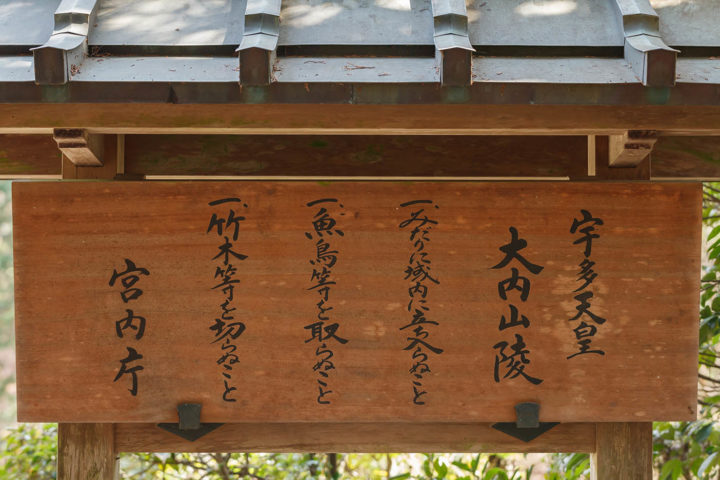 宇多天皇
大内山陵
一、みだりに域内に立ち入らぬこと
一、魚鳥等を取らぬこと
一、竹木等を切らぬこと
宮内庁